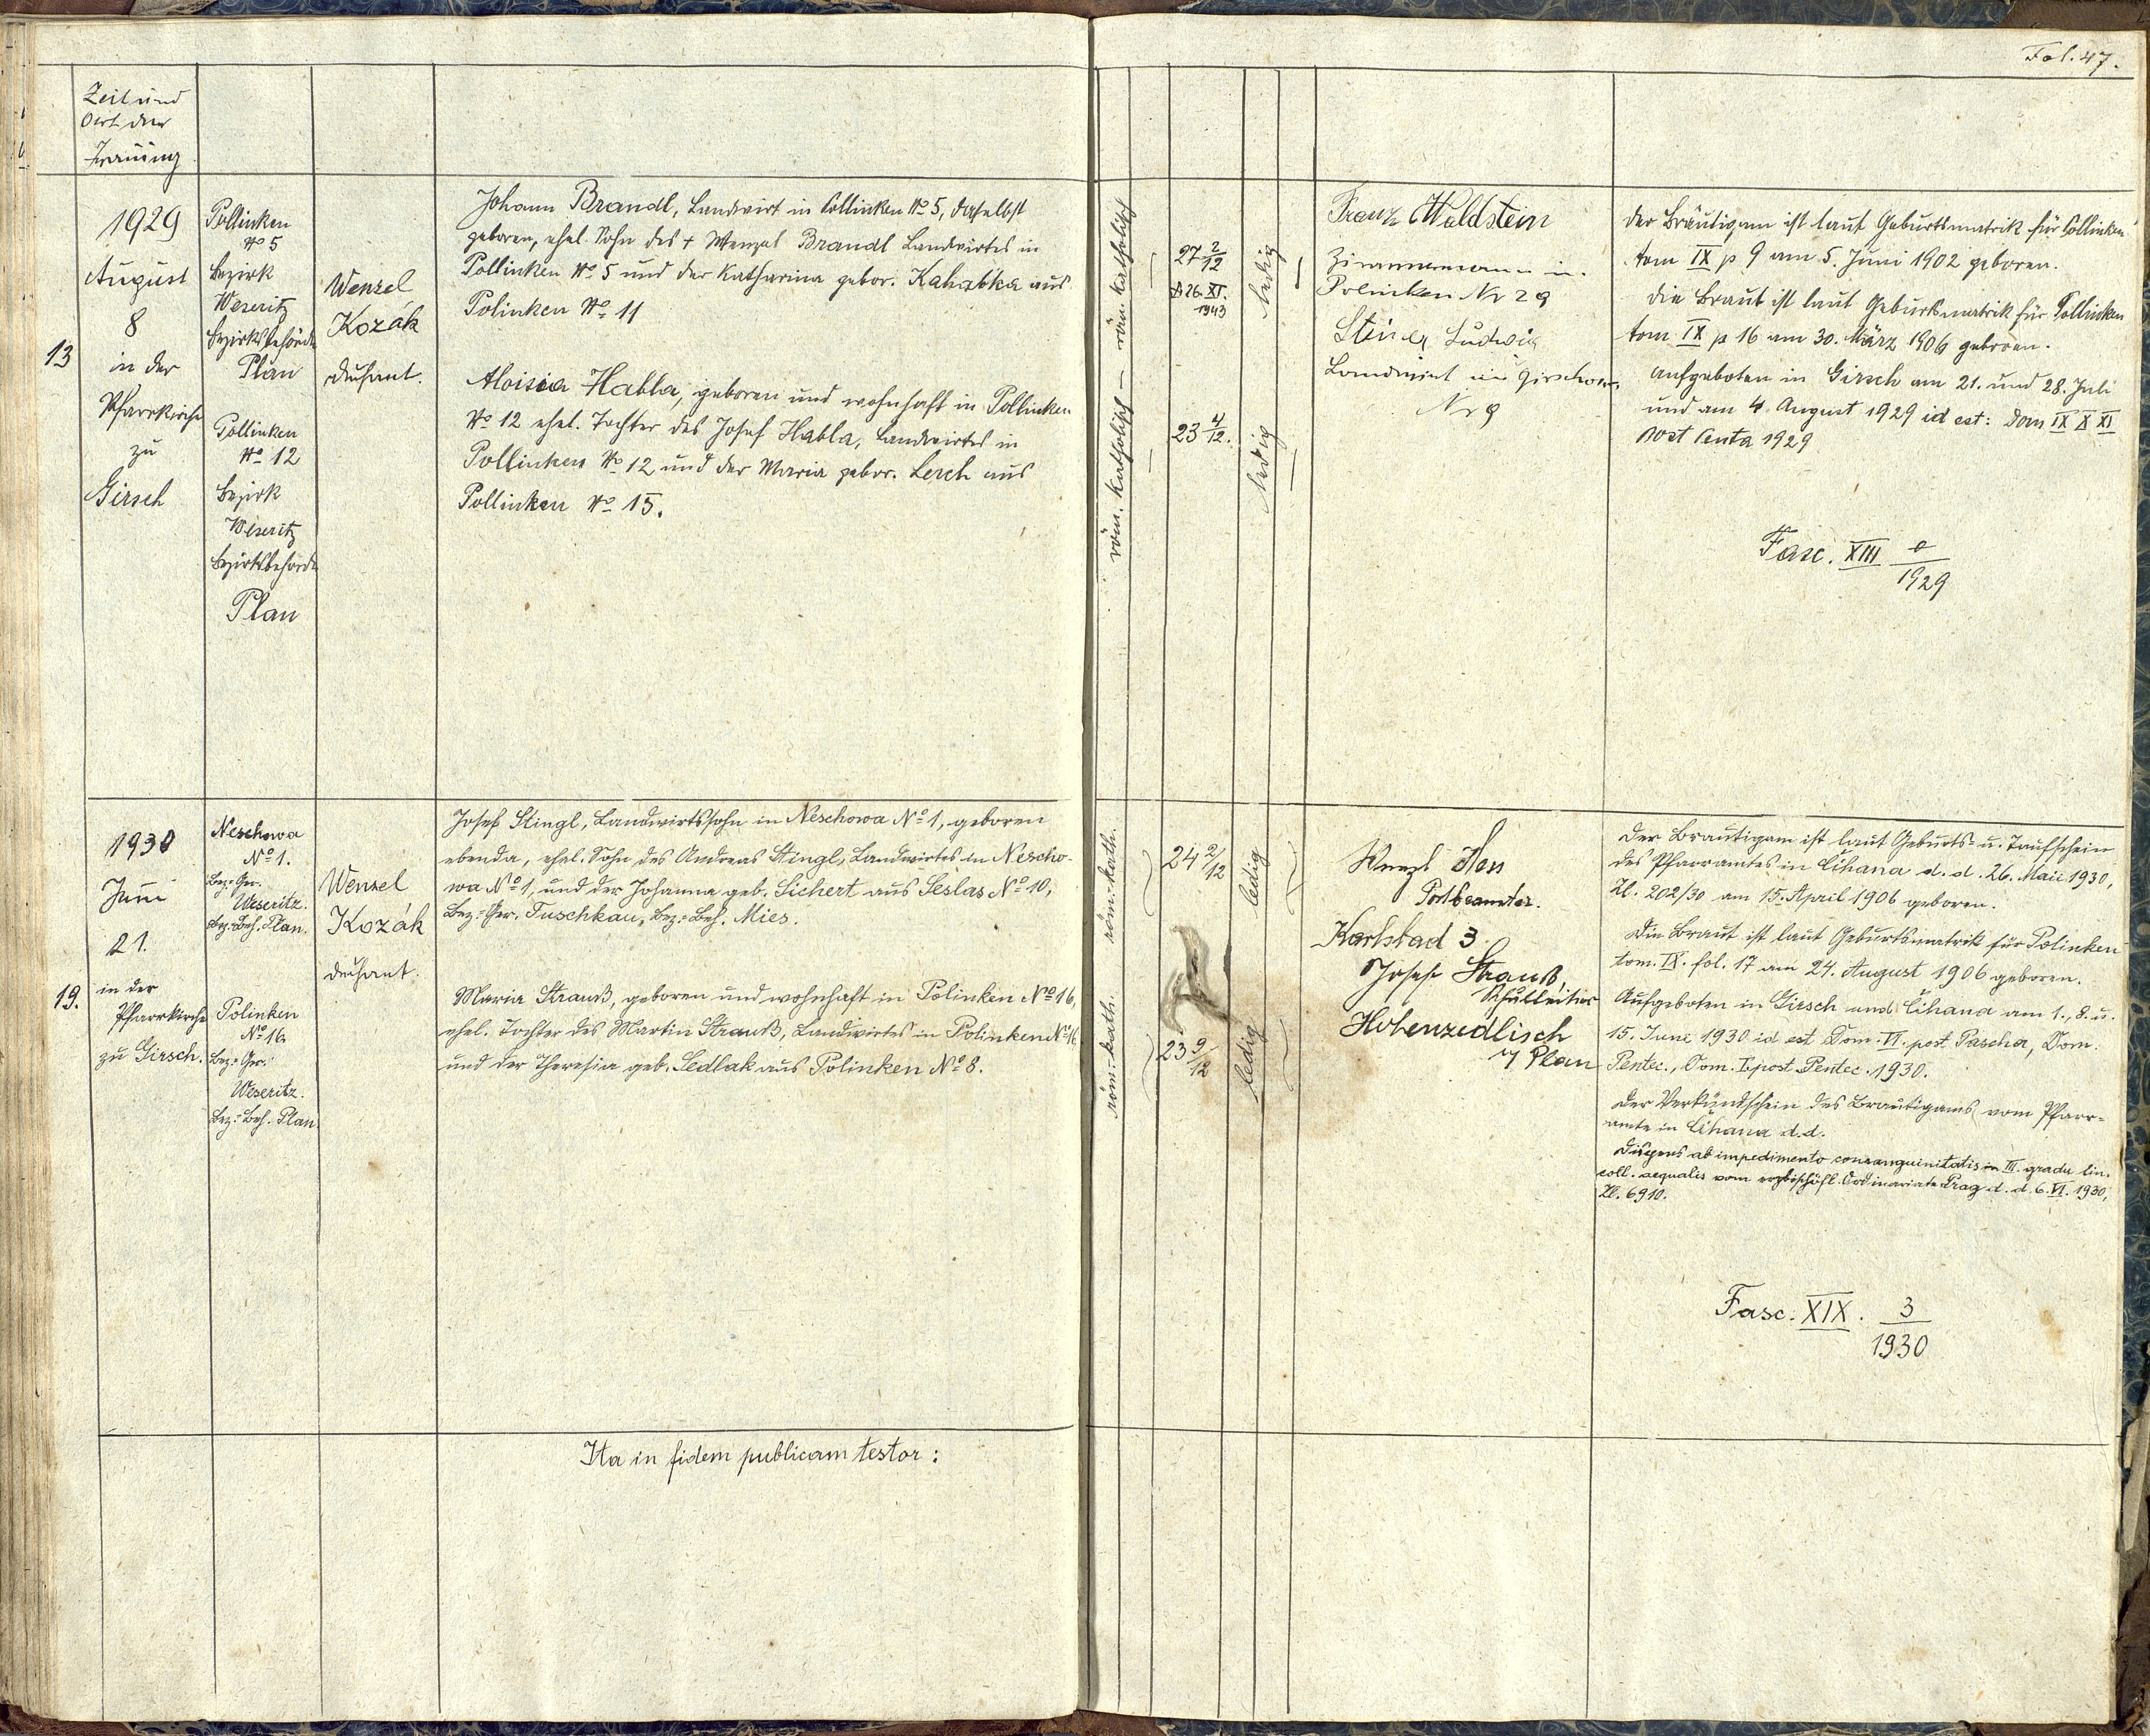 Fol. 47.
Zeit und
Ort der
Trauung
13
1929
August
8
in der
Pfarrkirche
zu
Girsch
Pollinken
No 5
Bezirk
Weseritz
Bezirksbehörde
Plan
Pollinken
No 12
Bezirk
Weseritz
Bezirksbehörde
Plan
Wenzel
Kozák
Dechant.
Johann Brandl, Landwirt in Pollinken No 5, daselbst
geboren, ehel. Sohn des + Wenzel Brandl Landwirtes in
Pollinken No 5 und der Katharina gebor. Kahabka aus
Polinken No 11
Aloisia Habla, geboren und wohnhaft in Pollinken
No 12 ehel. Tochter des Josef Habla, Landwirtes in
Pollinken No 12 und der Maria gebor. Lerch aus
Pollinken No 15.
röm. katholisch — röm. katholisch
27 2/12
26. XI.
1943
23 4/12.
ledig
ledig
Franz Waldstein
Zimmermann in
Polinken Nr 29
Steiner Ludwig
Landwirt in Girschowa
Nr 9
Der Bräutigam ist laut Geburtsmatrik für Pollinken
tom IX p 9 am 5. Juni 1902 geboren.
Die Braut ist laut Geburtsmatrik für Pollinken
tom IX p 16 am 30. März 1906 geboren.
Aufgeboten in Girsch am 21. und 28. Juli
und am 4. August 1929 id est: Dom IX X XI
post Penta 1929
Fasc. XIII
1929
19.
1930
Juni
21.
in der
Pfarrkirche
zu Girsch.
Neschowa
No 1.
Bez.-Ger.
Weseritz.
Bez.-Beh. Plan.
Polinken
No 16
Bez.-Ger.
Weseritz.
Bez.-Beh. Plan.
Wenzel
Kozák
Dechant.
Josef Stingl, Landwirtssohn in Neschowa No 1, geboren
ebenda, ehel. Sohn des Andreas Stingl, Landwirtes in Nescho-
wa No 1, und der Johanna geb. Sichert aus Seslas No 10,
Bez.-Ger. Tuschkau, Bez.-Beh. Mies.
Maria Strauß, geboren und wohnhaft in Polinken No 16,
ehel. Tochter des Martin Strauß, Landwirtes in Polinken No 16
und der Theresia geb. Sedlak aus Polinken No 8.
röm.-kath. röm.-kath.
24 2/12
23 9/12
ledig
ledig
Wenzl
Postbeamter.
Karlsbad 3.
Josef Strauß,
Schulleiter
Hohenzedlisch
Plan
Der Bräutigam ist laut Geburts- u. Taufschein
des Pfarramtes in Čihana d. d. 26. Mai 1930,
Zl. 202/30 am 15. April 1906 geboren.
Die Braut ist laut Geburtsmatrik für Polinken
tom. IX. fol. 17 am 24. August 1906 geboren.
Aufgeboten in Girsch und Čihana am 1., 8. u.
15. Juni 1930 id est Dom. VI. post Pascha, Dom.
Pentec., Dom. I post Pentec. 1930.
Der Verkündschein des Bräutigams vom Pfarr-
amte in Čihana d.d.
Dispens ab impedimento consanguinitatis in III. gradu lin.
coll. aequalis vom erzbischöfl. Ordinariate Prag d. d. 6. VI. 1930,
Zl. 6910.
Fasc. XIX. 3
1930
Ita in fidem publicam testor: